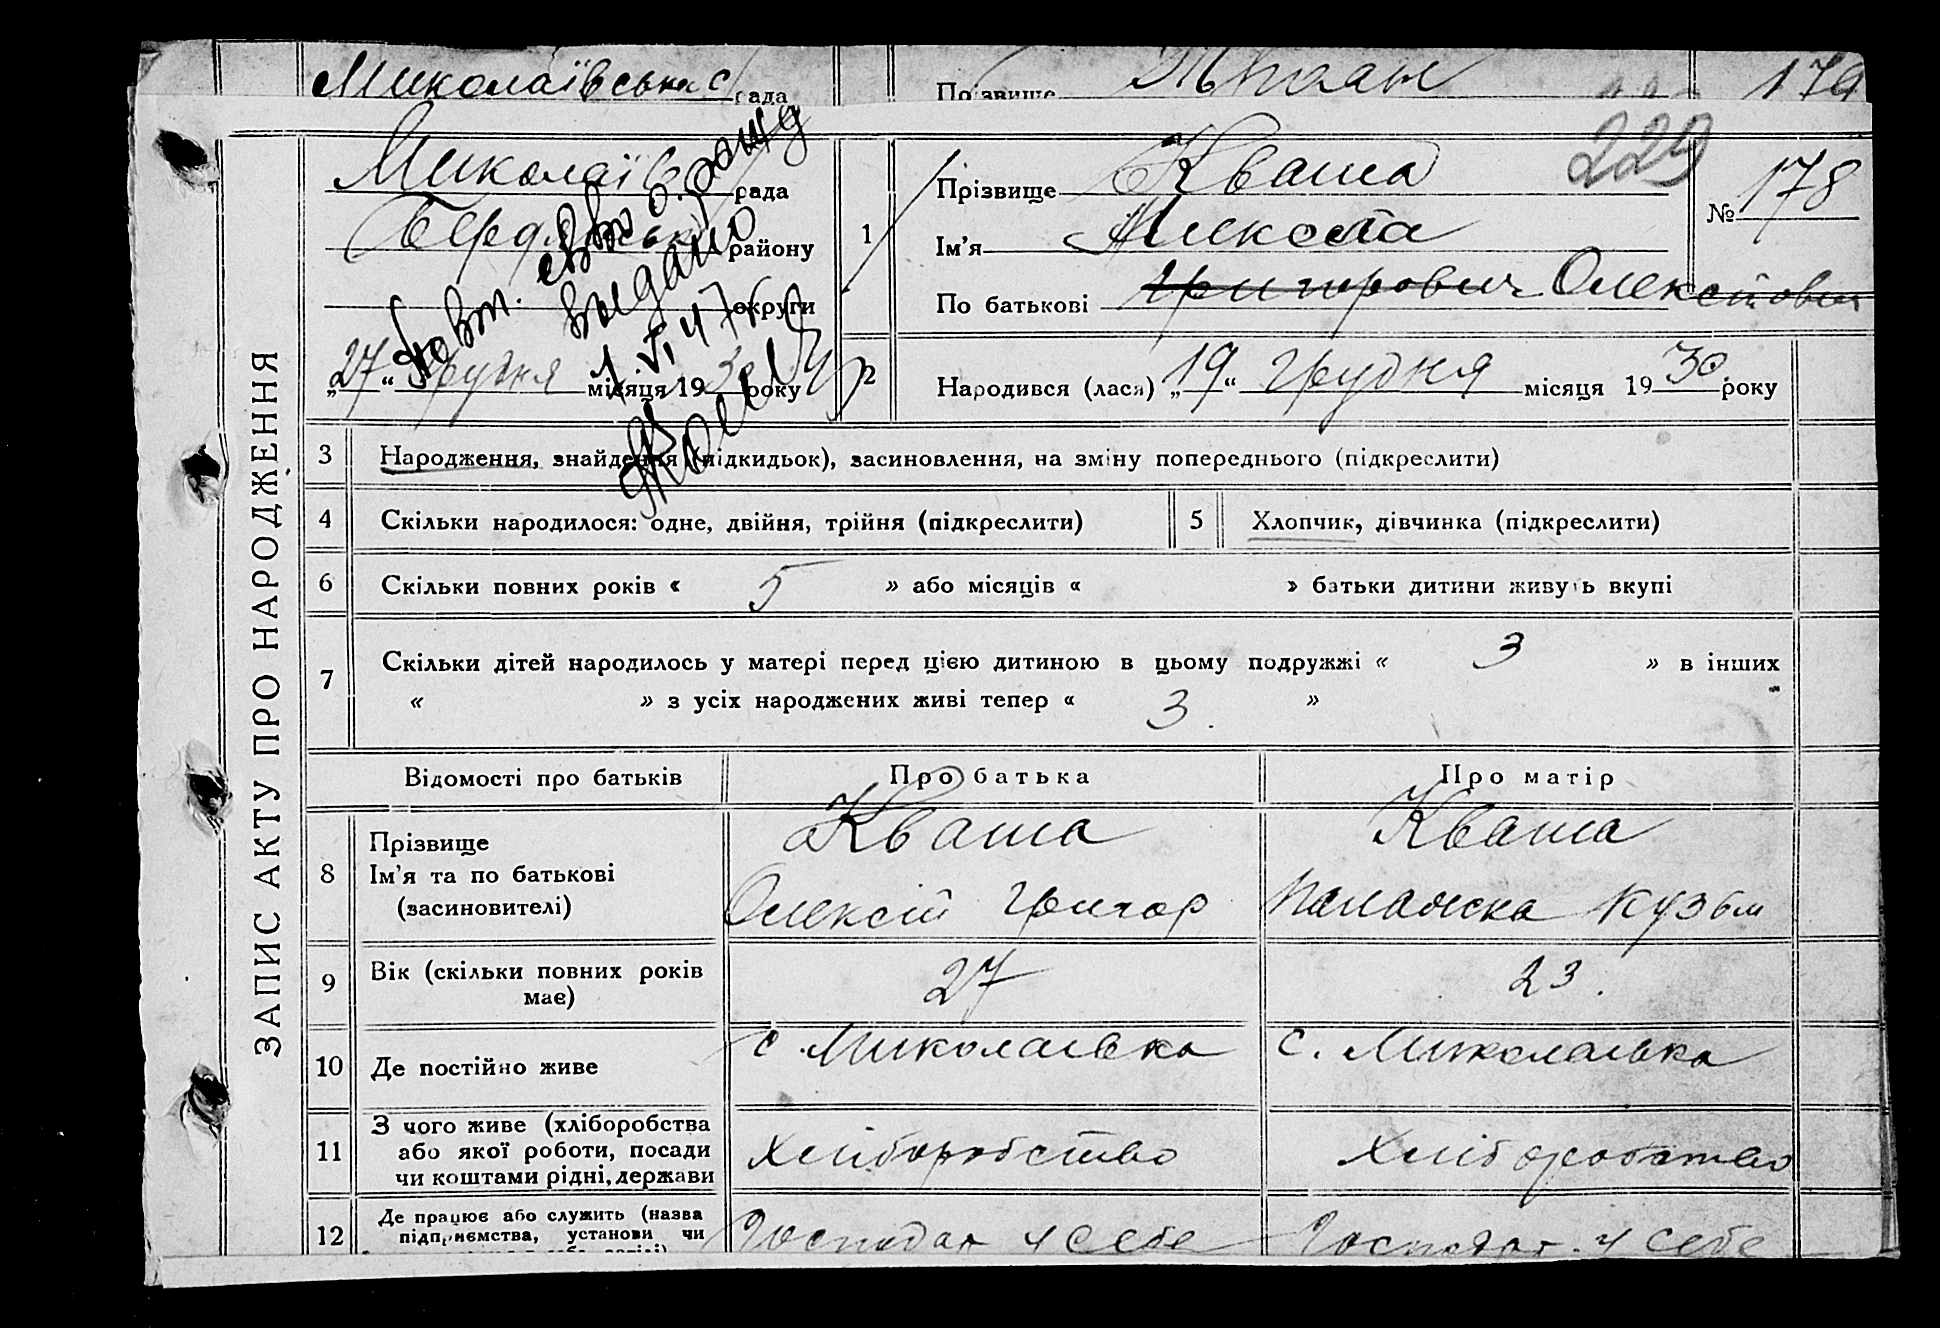 Миколаївська с рада
Прізвище
179
ЗАПИС АКТУ ПРО НАРОДЖЕННЯ
Миколаїв рада
Бердянськ району
округи
„27“ грудня місяця 1930 року
Повт. свво о. рожд
выдано
1.VI.47г
1
Прізвище Кваша
229
№ 178
Ім’я Микола
По батькові Григорович Олексійович
2
Народився (лася) „19“ грудня місяця 1930 року
3 Народження, знайдення (підкидьок), засиновлення, на зміну попереднього (підкреслити)
4 Скільки народилося: одне, двійня, трійня (підкреслити)
5 Хлопчик, дівчинка (підкреслити)
6 Скільки повних років « 5 » або місяців « » батьки дитини живуть вкупі
7 Скільки дітей народилось у матері перед цією дитиною в цьому подружжі « 3 » в інших
« » з усіх народжених живі тепер « 3. »
Відомості про батьків Про батька Про матір
8 Прізвище
Ім’я та по батькові
(засиновителі)
Кваша
Олексій Григор
Кваша
Палажка Кузьм
9 Вік (скільки повних років
має)
27
23.
10 Де постійно живе
с. Миколаївка
с. Миколаївка
11 З чого живе (хліборобства
або якої роботи, посади
чи коштами рідні, держави
хліборобство
хліборобство
12 Де працює або служить (назва
підприємства, установи чи
Господар у себе
Господар. у себе